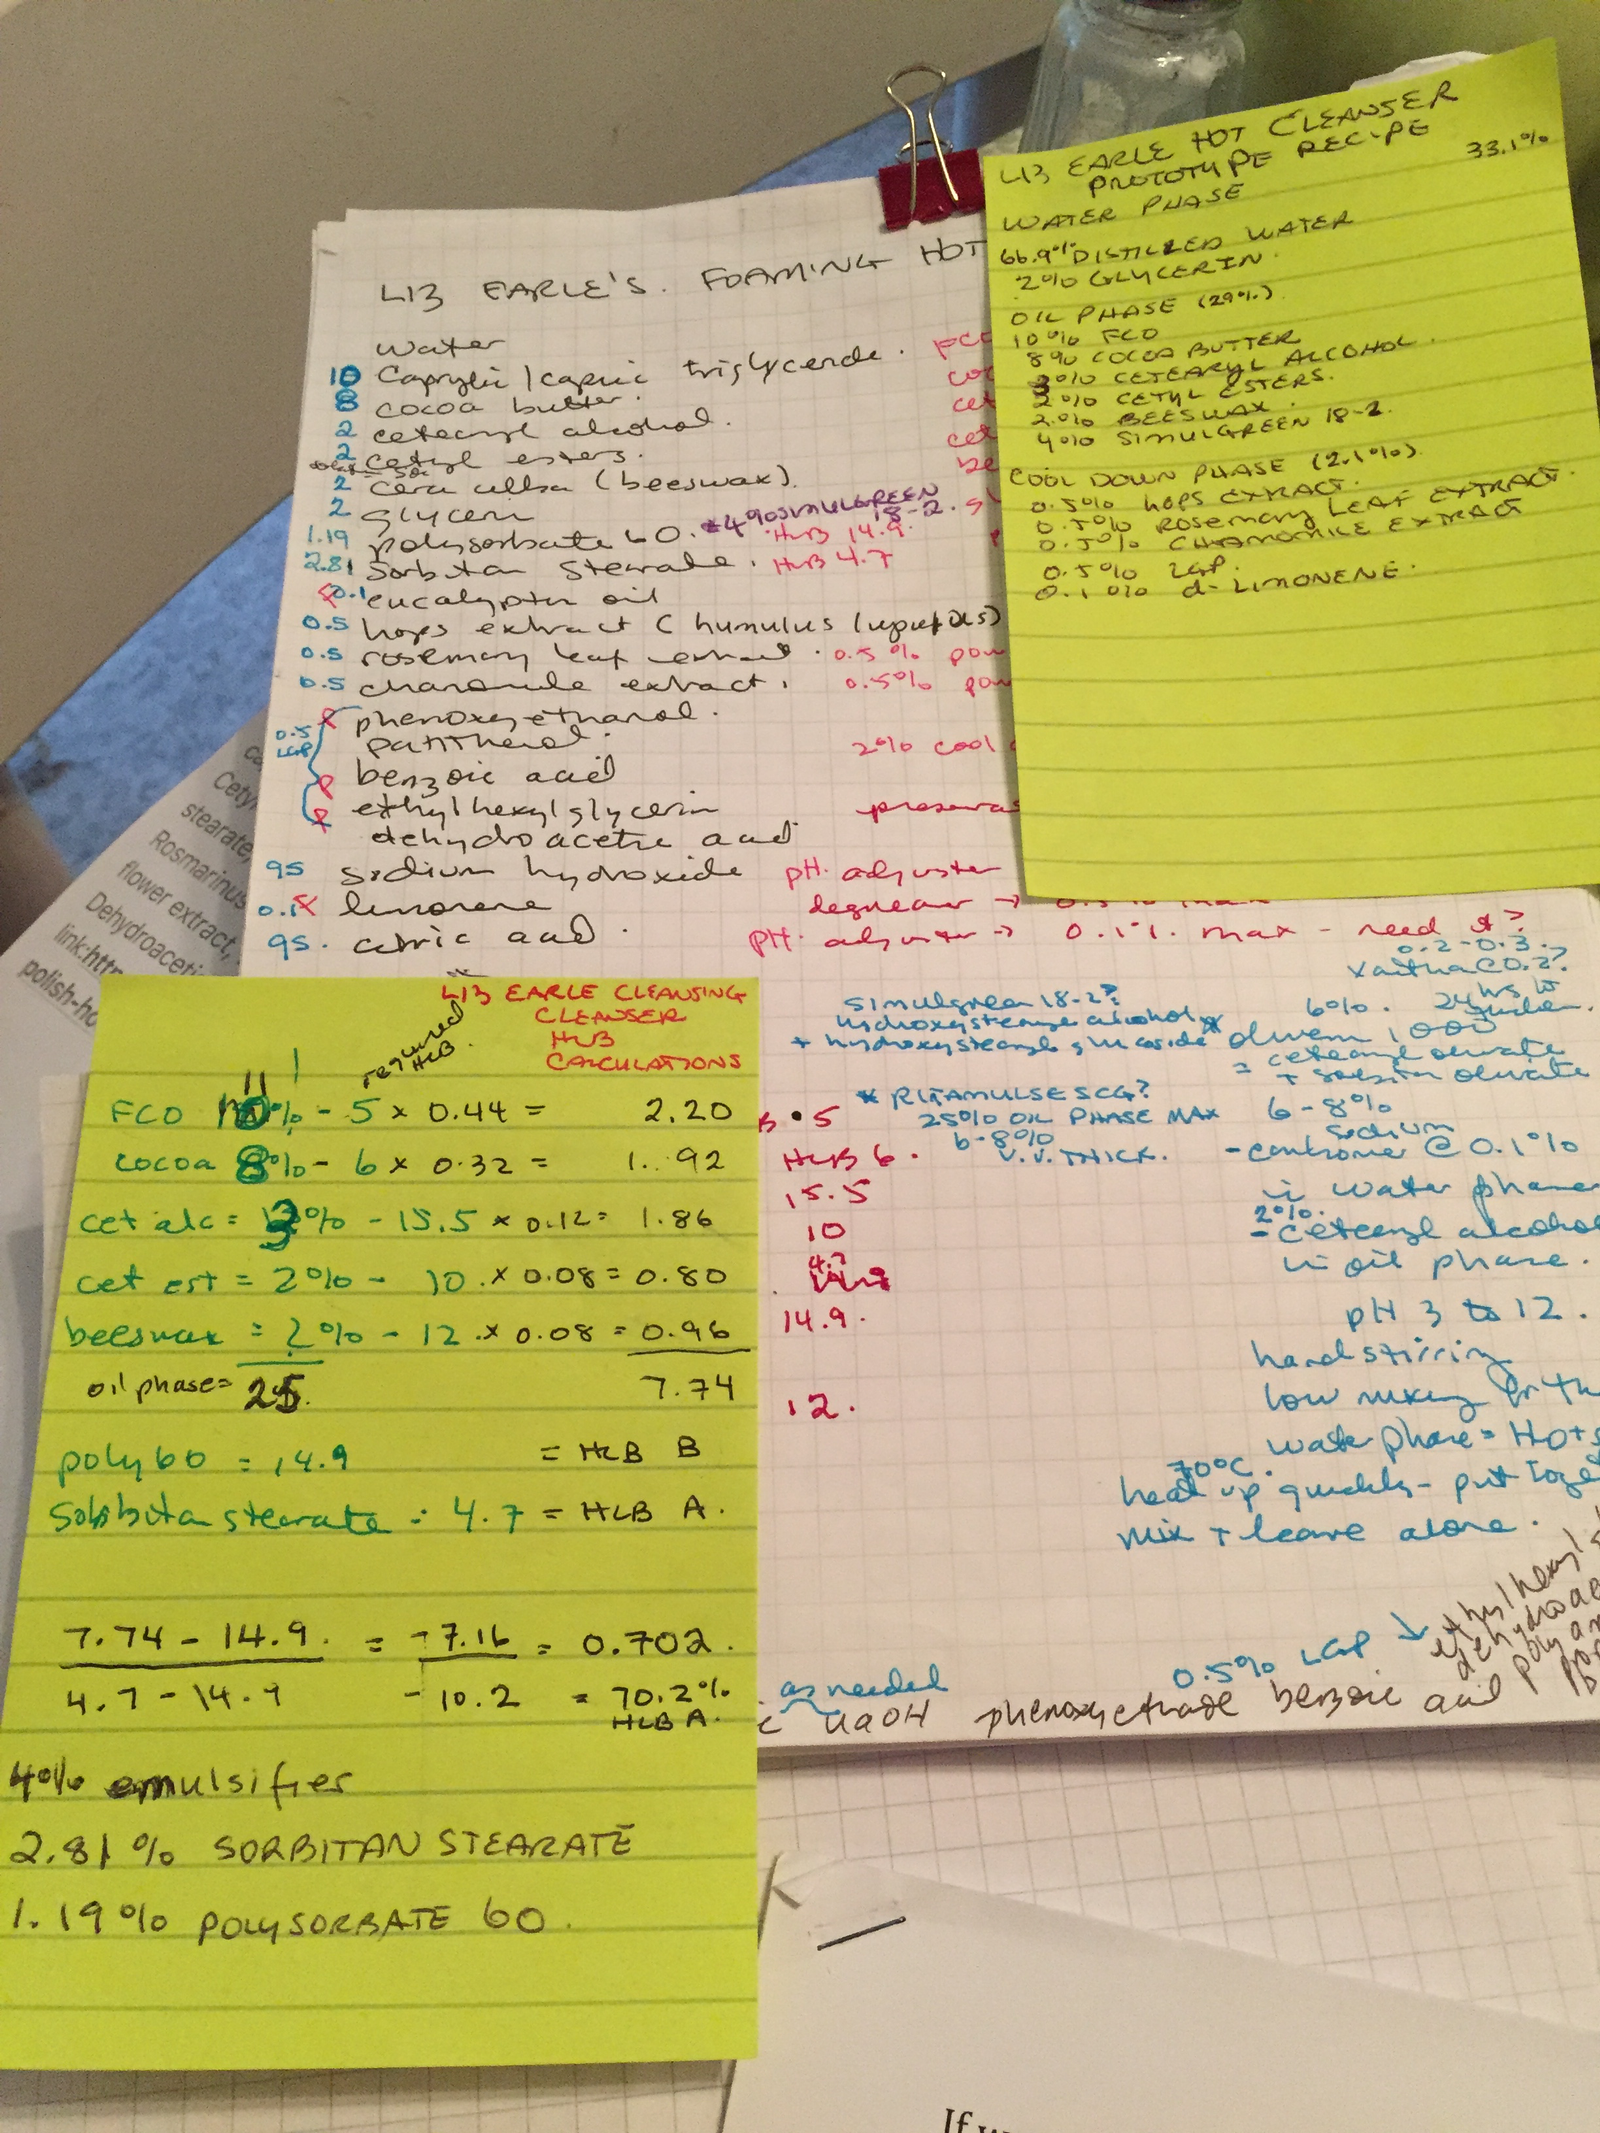 LIZ EARLE'S. FOAMING HOT
water
10 Caprylic/capric triglyceride. FCO
8 cocoa butter. coc
2 cetearyl alcohol. cet
2 cetyl esters. cet
2 cera alba (beeswax). be
2 glycerin *4% SIMULGREEN 18-2.
1.19 polysorbate 60. HLB 14.9.
2.81 Sorbitan Stearate. HLB 4.7
0.1 eucalyptus oil
0.5 hops extract (humulus lupulus)
0.5 rosemary leaf extract. 0.5% pow
0.5 chamomile extract. 0.5% pow
phenoxyethanol.
0.5 LGP panthenol. 2% cool
benzoic acid
ethylhexylglycerin preserva
dehydroacetic acid
qs sodium hydroxide pH adjuster
0.1 limonene degreaser →
qs. citric acid. pH adjuster → 0.1% max - need it?
LIZ EARLE HOT CLEANSER
PROTOTYPE RECIPE
33.1%
WATER PHASE
66.9% DISTILLED WATER
2% GLYCERIN.
OIL PHASE (29%)
10% FCO
8% COCOA BUTTER
3% CETEARYL ALCOHOL.
2% CETYL ESTERS.
2.0% BEESWAX.
4% SIMULGREEN 18-2.
COOL DOWN PHASE (2.1%).
0.5% HOPS EXTRACT.
0.5% ROSEMARY LEAF EXTRACT
0.5% CHAMOMILE EXTRACT
0.5% LGP.
0.1% d-LIMONENE.
0.2-0.3.
xanthan @ 0.2?
Simulgreen 18-2?
hydroxystearyl alcohol
+ hydroxystearyl glucoside
6%. 24 hrs to
olivem 1000
= cetearyl olivate
+ sorbitan olivate
* RITAMULSE SCG?
25% OIL PHASE MAX
6-8%
V.V. THICK.
6-8%
sodium
- carbomer @ 0.1%
in water phase
2%.
- cetearyl alcohol
in oil phase.
pH 3 to 12.
hand stirring
low mixing for th
water phase = Hot
70°C.
heat up quickly - put toge
mix + leave alone.
B • 5
HLB 6.
15.5
10
4.7
14.9.
12.
0.5% LGP
ethylhexyl
dehydroac
as needed
NaOH phenoxyethanol benzoic acid
LIZ EARLE CLEANSING
CLEANSER
HLB
CALCULATIONS
required HLB.
11
FCO 10% - 5 x 0.44 = 2.20
cocoa 8% - 6 x 0.32 = 1.92
cet alc = 3% - 15.5 x 0.12 = 1.86
cet est = 2% - 10. x 0.08 = 0.80
beeswax = 2% - 12. x 0.08 = 0.96
oil phase = 25. 7.74
poly 60 = 14.9 = HLB B
Sorbitan stearate = 4.7 = HLB A.
7.74 - 14.9. = -7.16 = 0.702.
4.7 - 14.9 -10.2 = 70.2%
HLB A.
4% emulsifier
2.81% SORBITAN STEARATE
1.19% POLYSORBATE 60.
Cetyl
stearate,
Rosmarinus
flower extract,
Dehydroaceti
link:http
polish-ho